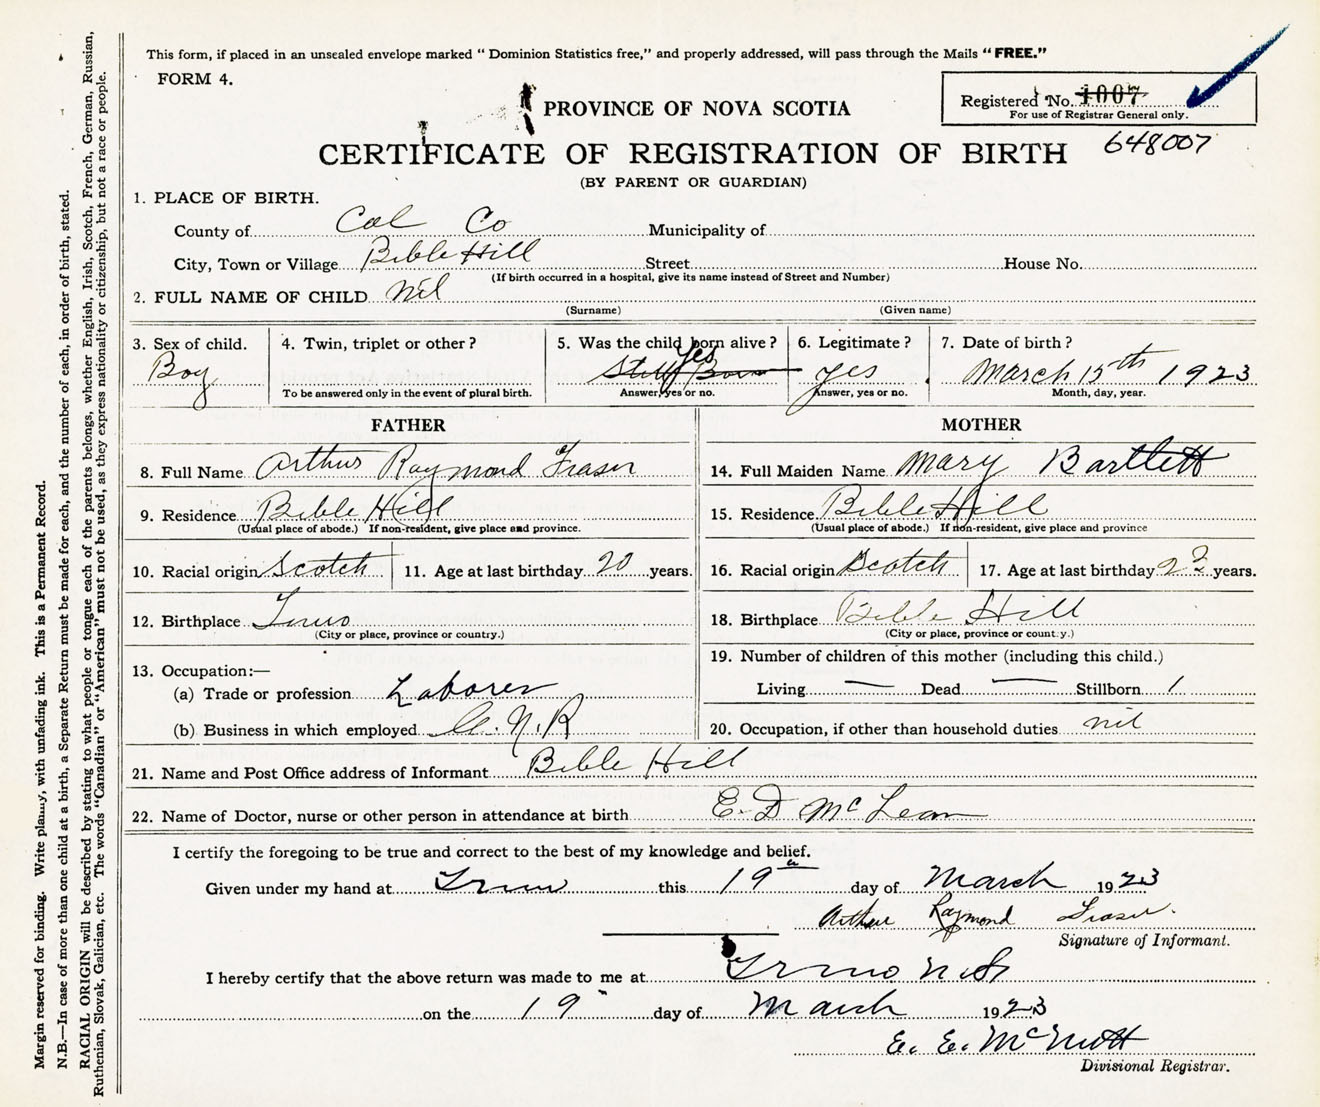 This form, if placed in an unsealed envelope marked “ Dominion Statistics free,” and properly addressed, will pass through the Mails “ FREE.”
FORM 4.
Registered No. 1007
For use of Registrar General only.
PROVINCE OF NOVA SCOTIA
648007
CERTIFICATE OF REGISTRATION OF BIRTH
(BY PARENT OR GUARDIAN)
1. PLACE OF BIRTH.
County of Col Co Municipality of
City, Town or Village Bible Hill Street House No.
(If birth occurred in a hospital, give its name instead of Street and Number)
2. FULL NAME OF CHILD nil
(Surname) (Given name)
3. Sex of child. 4. Twin, triplet or other ? 5. Was the child born alive ? 6. Legitimate ? 7. Date of birth ?
Boy Still Born Yes yes March 15th 1923
To be answered only in the event of plural birth. Answer, yes or no. Answer, yes or no. Month, day, year.
FATHER MOTHER
8. Full Name Arthur Raymond Fraser 14. Full Maiden Name Mary Bartlett
9. Residence Bible Hill 15. Residence Bible Hill
(Usual place of abode.) If non-resident, give place and province. (Usual place of abode.) If non-resident, give place and province
10. Racial origin Scotch 11. Age at last birthday 20 years. 16. Racial origin Scotch 17. Age at last birthday 23 years.
12. Birthplace Truro 18. Birthplace Bible Hill
(City or place, province or country.) (City or place, province or country.)
13. Occupation:— 19. Number of children of this mother (including this child.)
(a) Trade or profession Laborer Living — Dead — Stillborn 1
(b) Business in which employed C. N. R 20. Occupation, if other than household duties nil
21. Name and Post Office address of Informant Bible Hill
22. Name of Doctor, nurse or other person in attendance at birth E D McLean
I certify the foregoing to be true and correct to the best of my knowledge and belief.
Given under my hand at Truro this 19 day of March 1923
Arthur Raymond Fraser.
Signature of Informant.
I hereby certify that the above return was made to me at Truro N S
on the 19 day of March 1923
E. E. McNutt
Divisional Registrar.
Margin reserved for binding. Write plainly, with unfading ink. This is a Permanent Record.
N.B.—In case of more than one child at a birth, a Separate Return must be made for each, and the number of each, in order of birth, stated.
RACIAL ORIGIN will be described by stating to what people or tongue each of the parents belongs, whether English, Irish, Scotch, French, German, Russian,
Ruthenian, Slovak, Galician, etc. The words “Canadian” or “American” must not be used, as they express nationality or citizenship, but not a race or people.